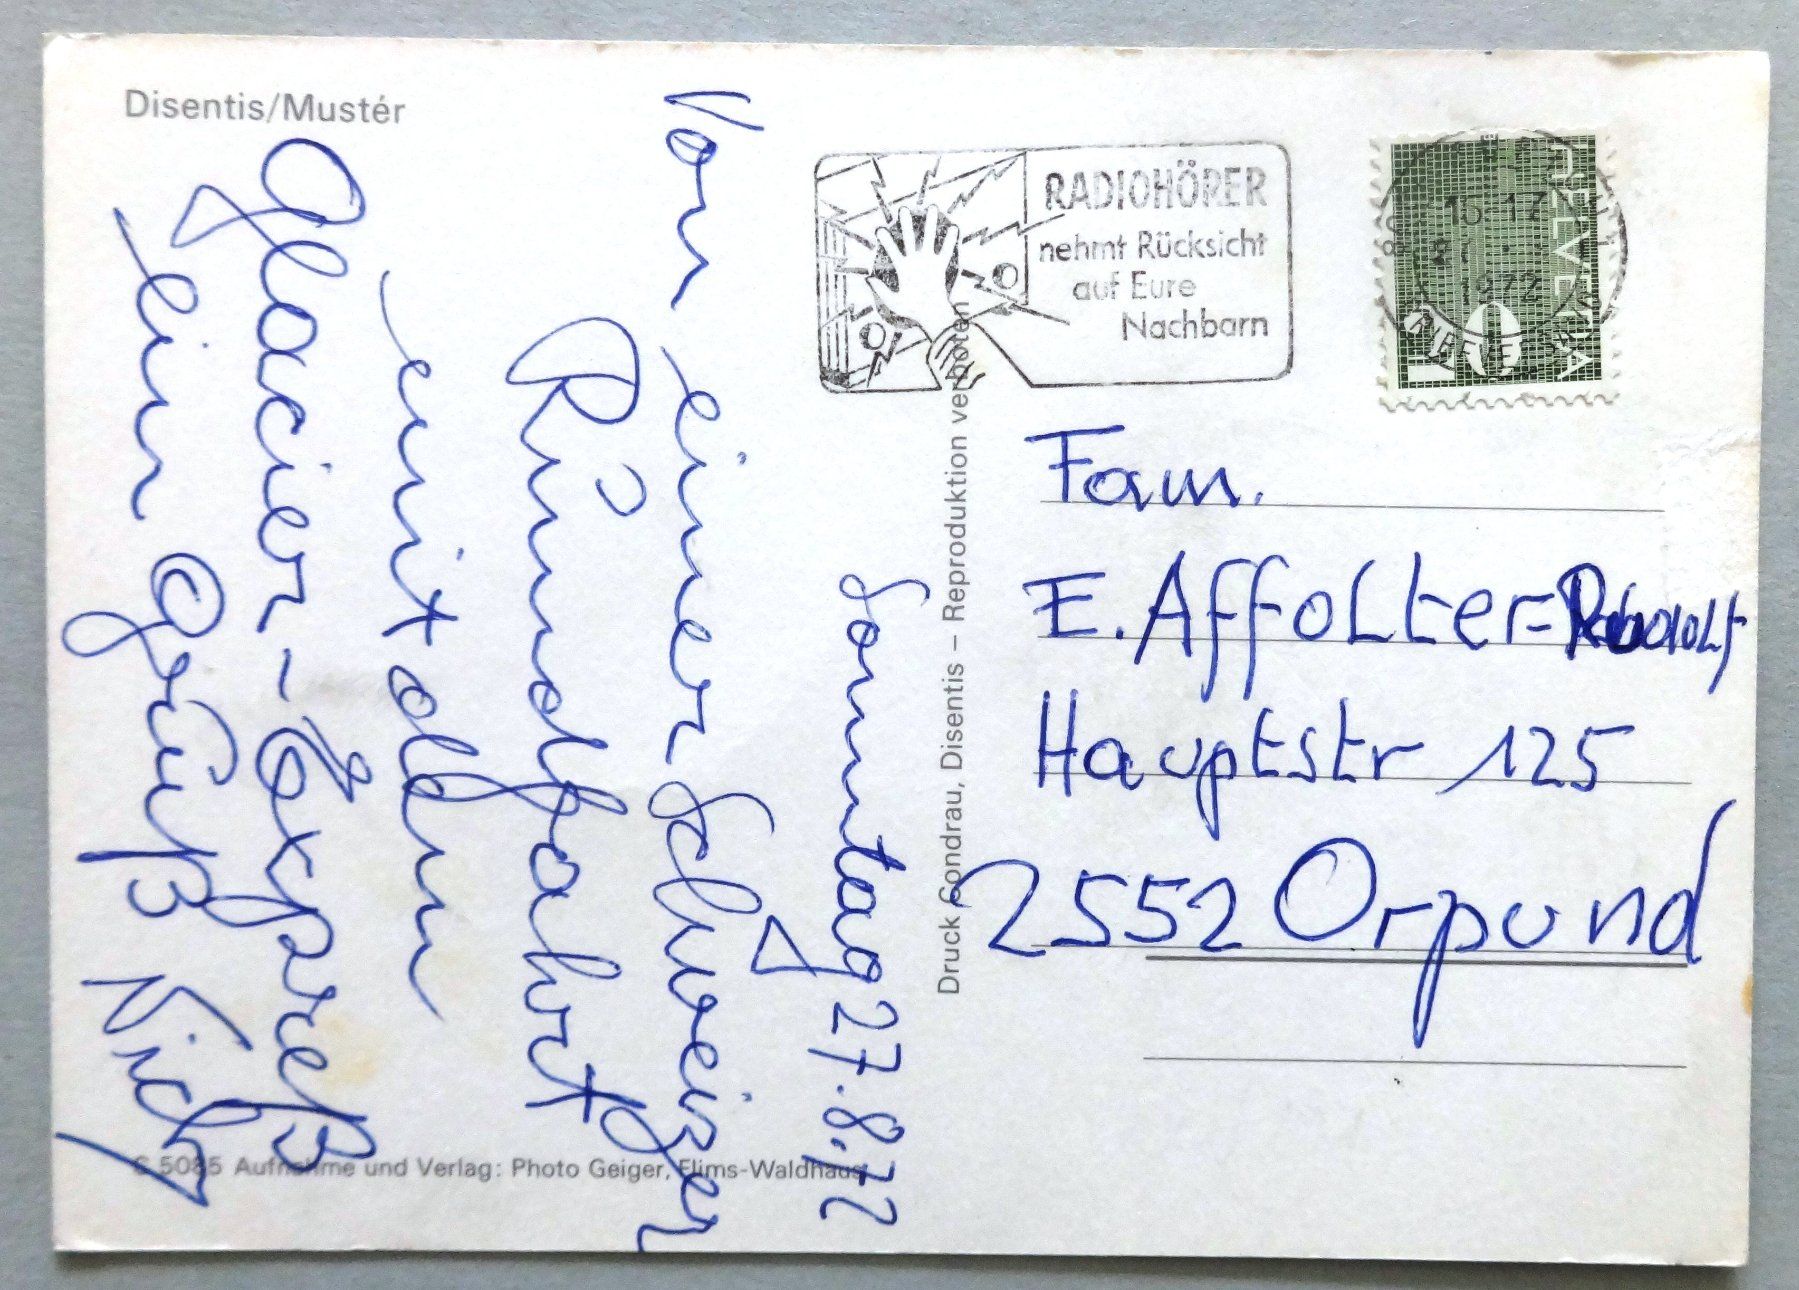 Disentis/Mustér
Sonntag 27.8.72
Von einer Schweizer
Rundfahrt
mit dem
Glacier-Expreß
ein Gruß Nicky
S 5085 Aufnahme und Verlag: Photo Geiger, Flims-Waldhaus
Druck Condrau, Disentis – Reproduktion verboten
RADIOHÖRER
nehmt Rücksicht
auf Eure
Nachbarn
HELVETIA
10
1972
BRIEFVERSAND
Fam.
E. Affolter-
Hauptstr 125
2552 Orpund